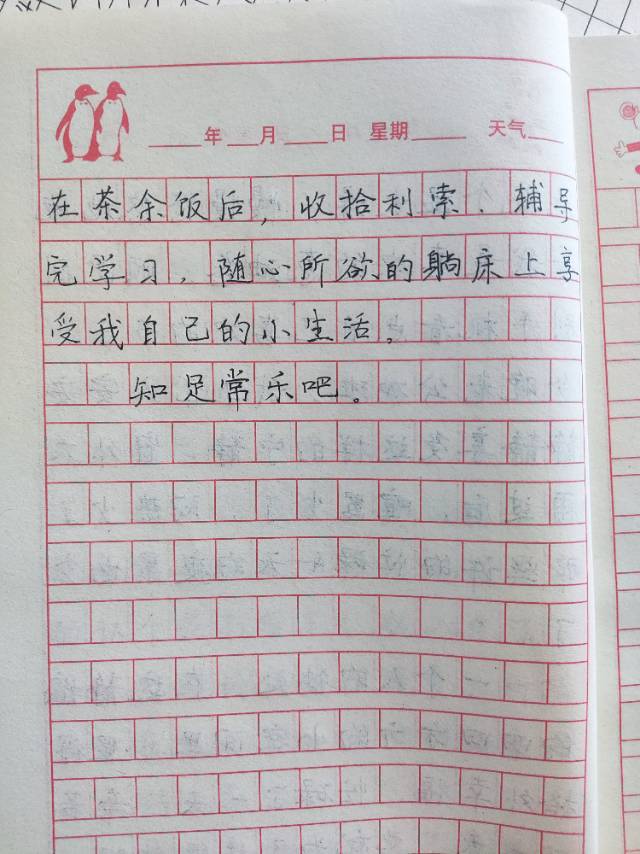 ____年___月____日 星期_____ 天气___
在茶余饭后，收拾利索、辅导
完学习，随心所欲的躺床上享
受我自己的小生活。
知足常乐吧。